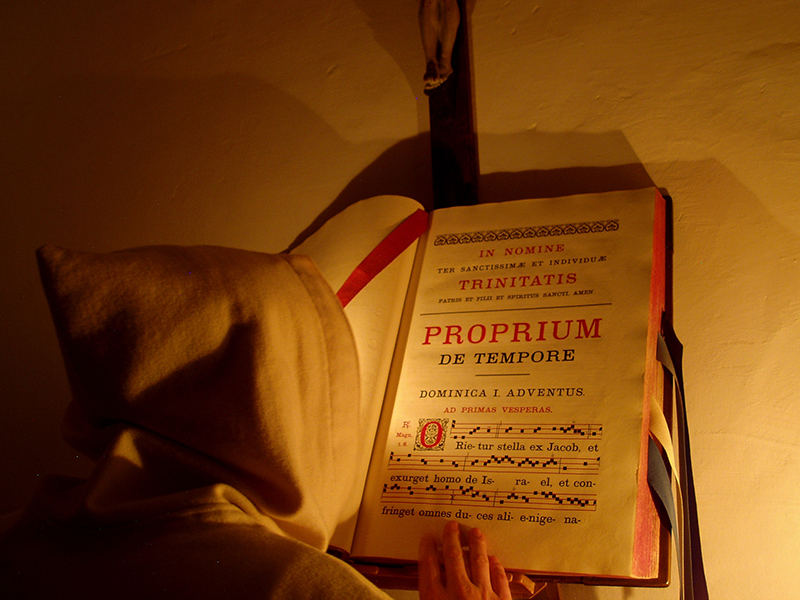 IN NOMINE
TER SANCTISSIMÆ ET INDIVIDUÆ
TRINITATIS
PATRIS ET FILII ET SPIRITUS SANCTI. AMEN.
PROPRIUM
DE TEMPORE
DOMINICA I. ADVENTUS.
AD PRIMAS VESPERAS.
℟.
Magn.
ORie-tur stella ex Jacob, et
exurget homo de Is- ra- el, et con-
fringet omnes du- ces ali- e-nige- na-